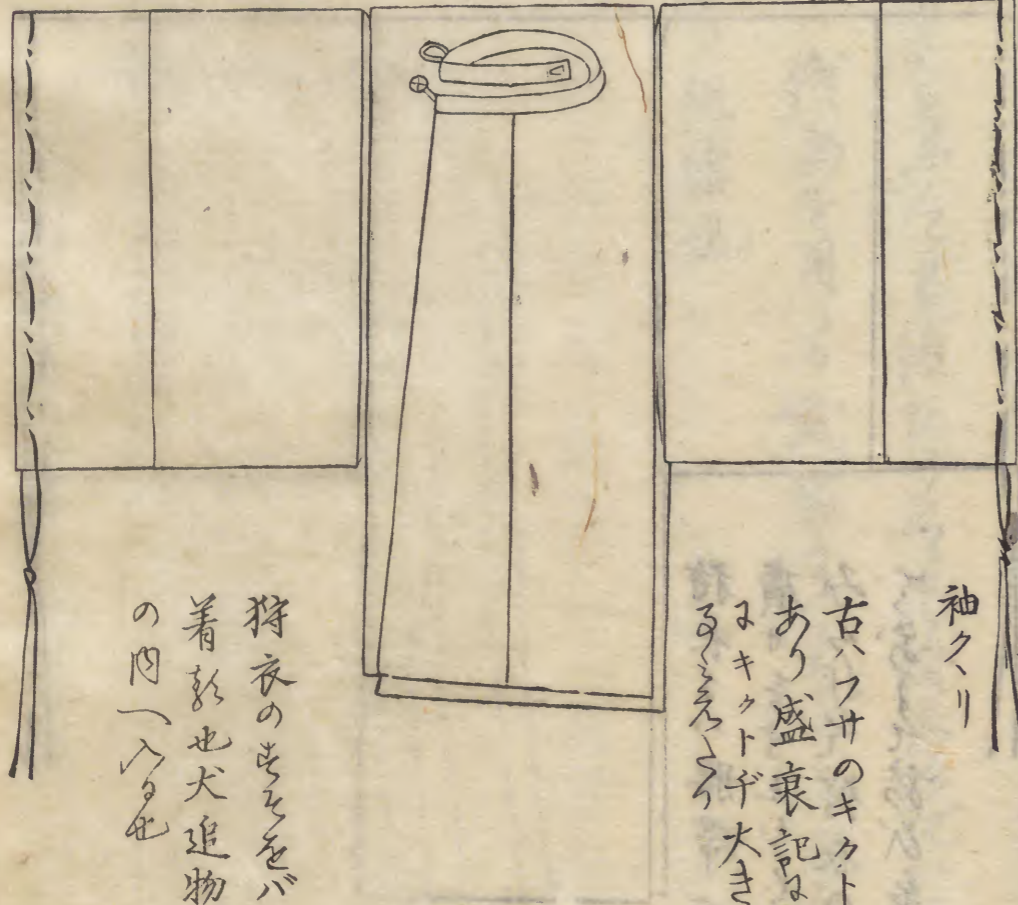 袖クヽリ
古ハフサのキクト
あり盛衰記ニ
キクトヂ大き
狩衣のすそをバ
着類也犬追物
の内へ入る也